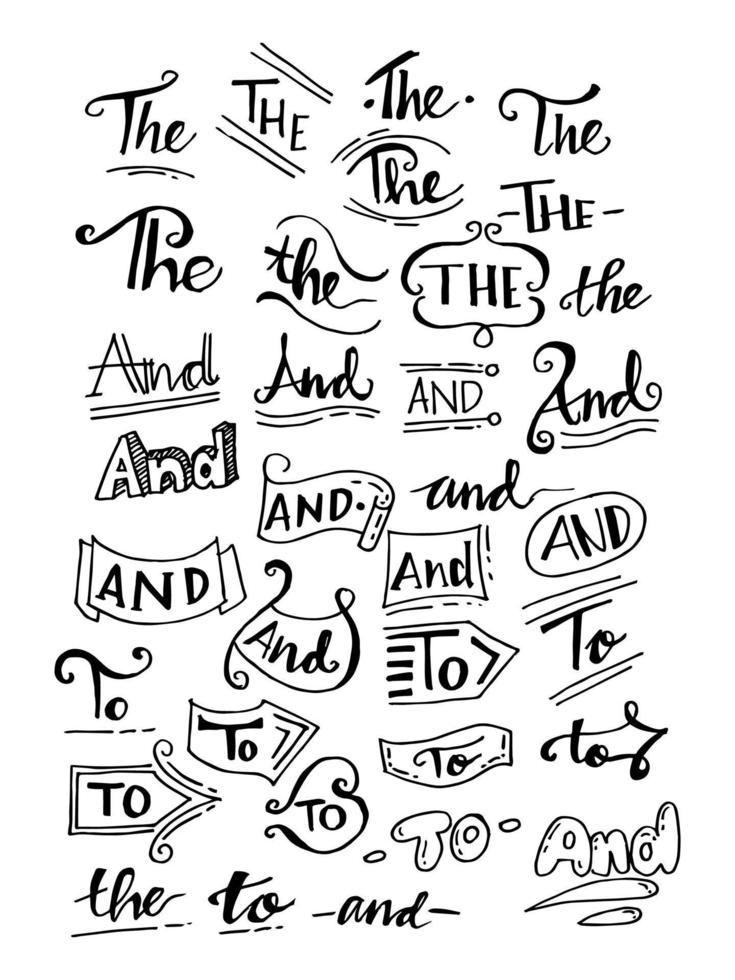 The THE The The
The
THE
The the THE the
And And AND And
And AND. and AND
AND And And
To To To
To To to
TO TO TO And
the to and